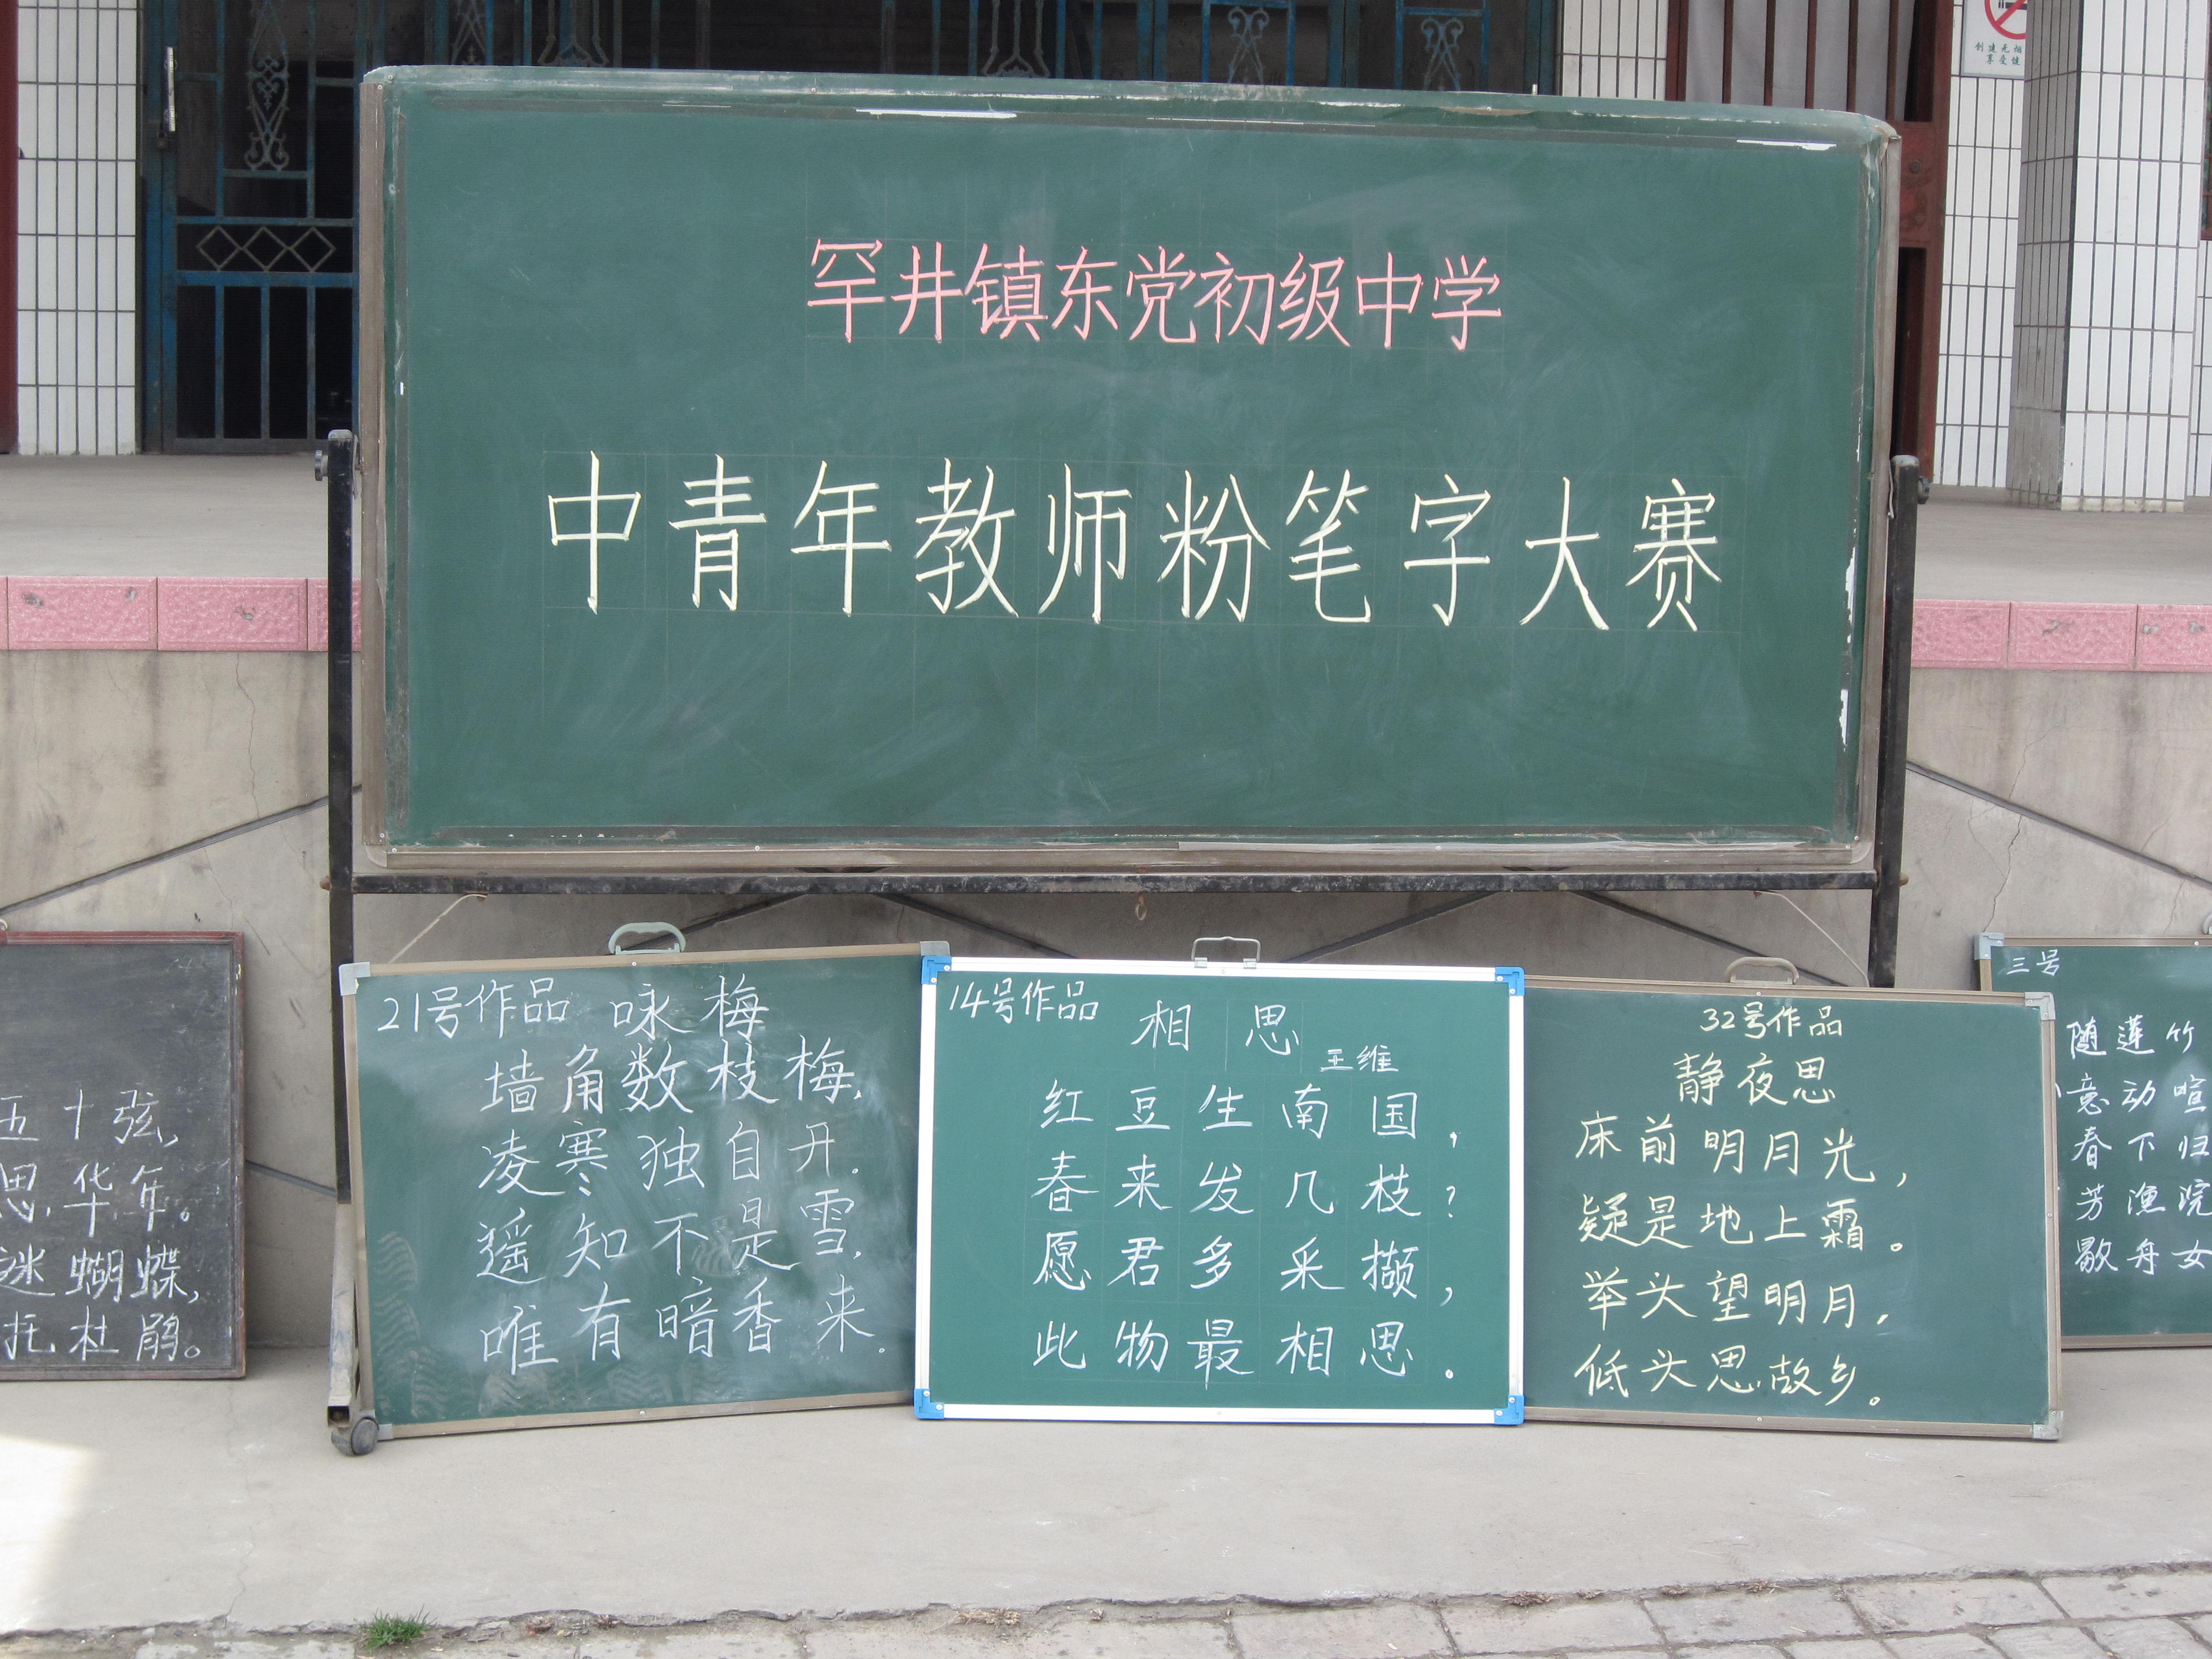 创建无烟
享受健
罕井镇东党初级中学
中青年教师粉笔字大赛
五十弦,
思华年。
迷蝴蝶,
托杜鹃。
21号作品 咏梅
墙角数枝梅,
凌寒独自开.
遥知不是雪,
唯有暗香来.
14号作品
相思
王维
红豆生南国,
春来发几枝?
愿君多采撷,
此物最相思.
32号作品
静夜思
床前明月光,
疑是地上霜。
举头望明月,
低头思故乡。
三号
随莲竹
意动喧
春下归
芳渔浣
歇舟女